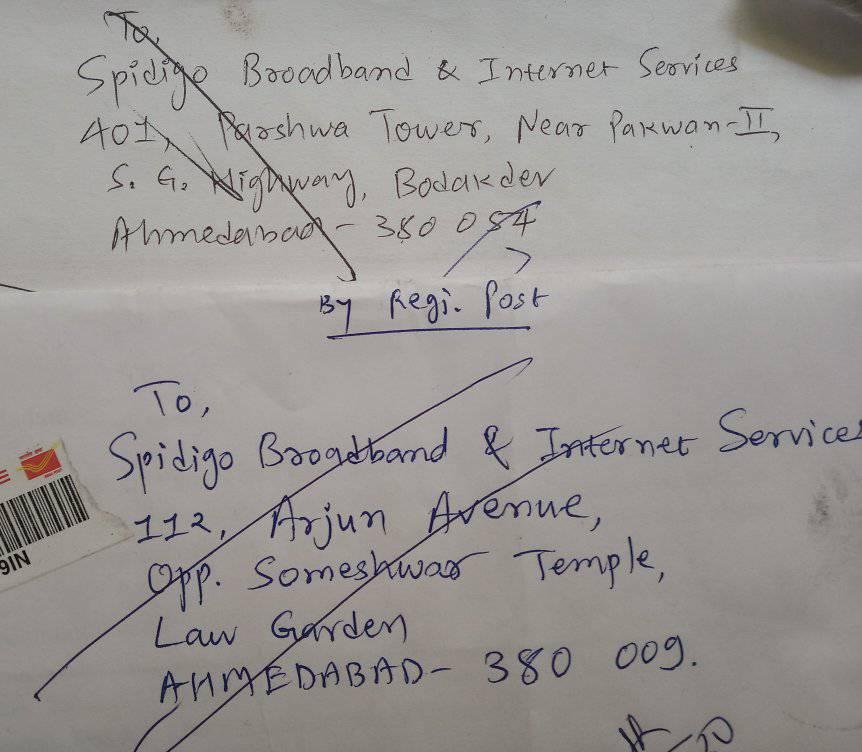 To,
Spidigo Broadband & Internet Services
401, Parshwa Tower, Near Pakwan-II,
S. G. Highway, Bodakdev
Ahmedabad - 380 054
By Regi. Post
To,
Spidigo Broadband & Internet Services
112, Arjun Avenue,
Opp. Someshwar Temple,
Law Garden
AHMEDABAD- 380 009.
9IN